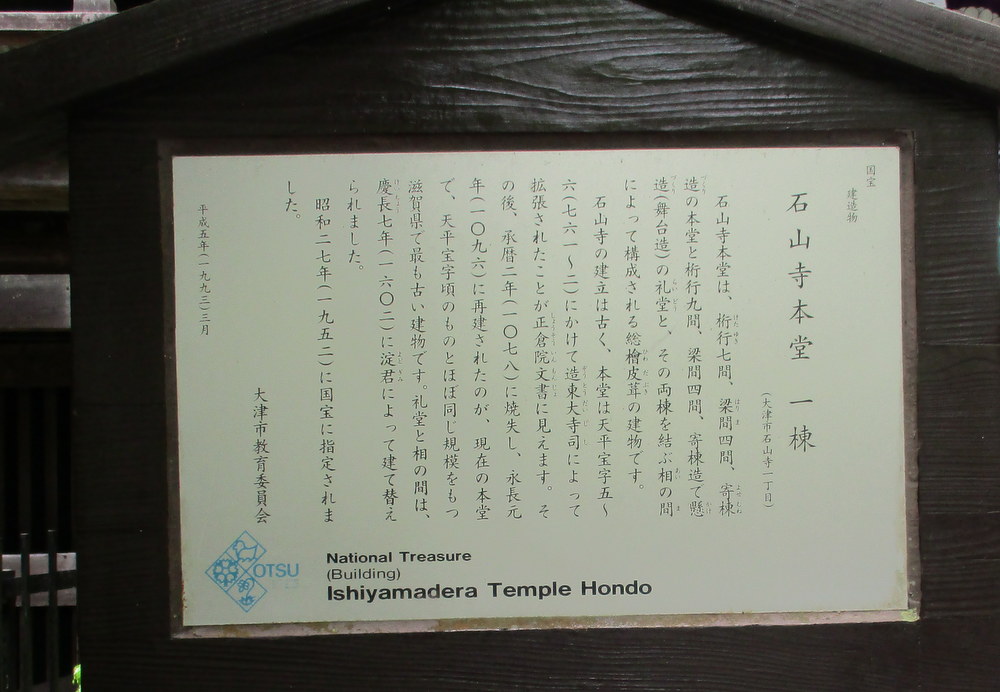 国宝 建造物
石山寺本堂 一棟
(大津市石山寺一丁目)
石山寺本堂は、桁行七間、梁間四間、寄棟
造の本堂と桁行九間、梁間四間、寄棟造で懸
造(舞台造)の礼堂と、その両棟を結ぶ相の間
によって構成される総檜皮葺の建物です。
石山寺の建立は古く、本堂は天平宝字五〜
六(七六一〜二)にかけて造東大寺司によって
拡張されたことが正倉院文書に見えます。そ
の後、承暦二年(一〇七八)に焼失し、永長元
年(一〇九六)に再建されたのが、現在の本堂
で、天平宝字頃のものとほぼ同じ規模をもつ
滋賀県で最も古い建物です。礼堂と相の間は、
慶長七年(一六〇二)に淀君によって建て替え
られました。
昭和二七年(一九五二)に国宝に指定されま
した。
平成五年(一九九三)三月
大津市教育委員会
OTSU
National Treasure
(Building)
Ishiyamadera Temple Hondo